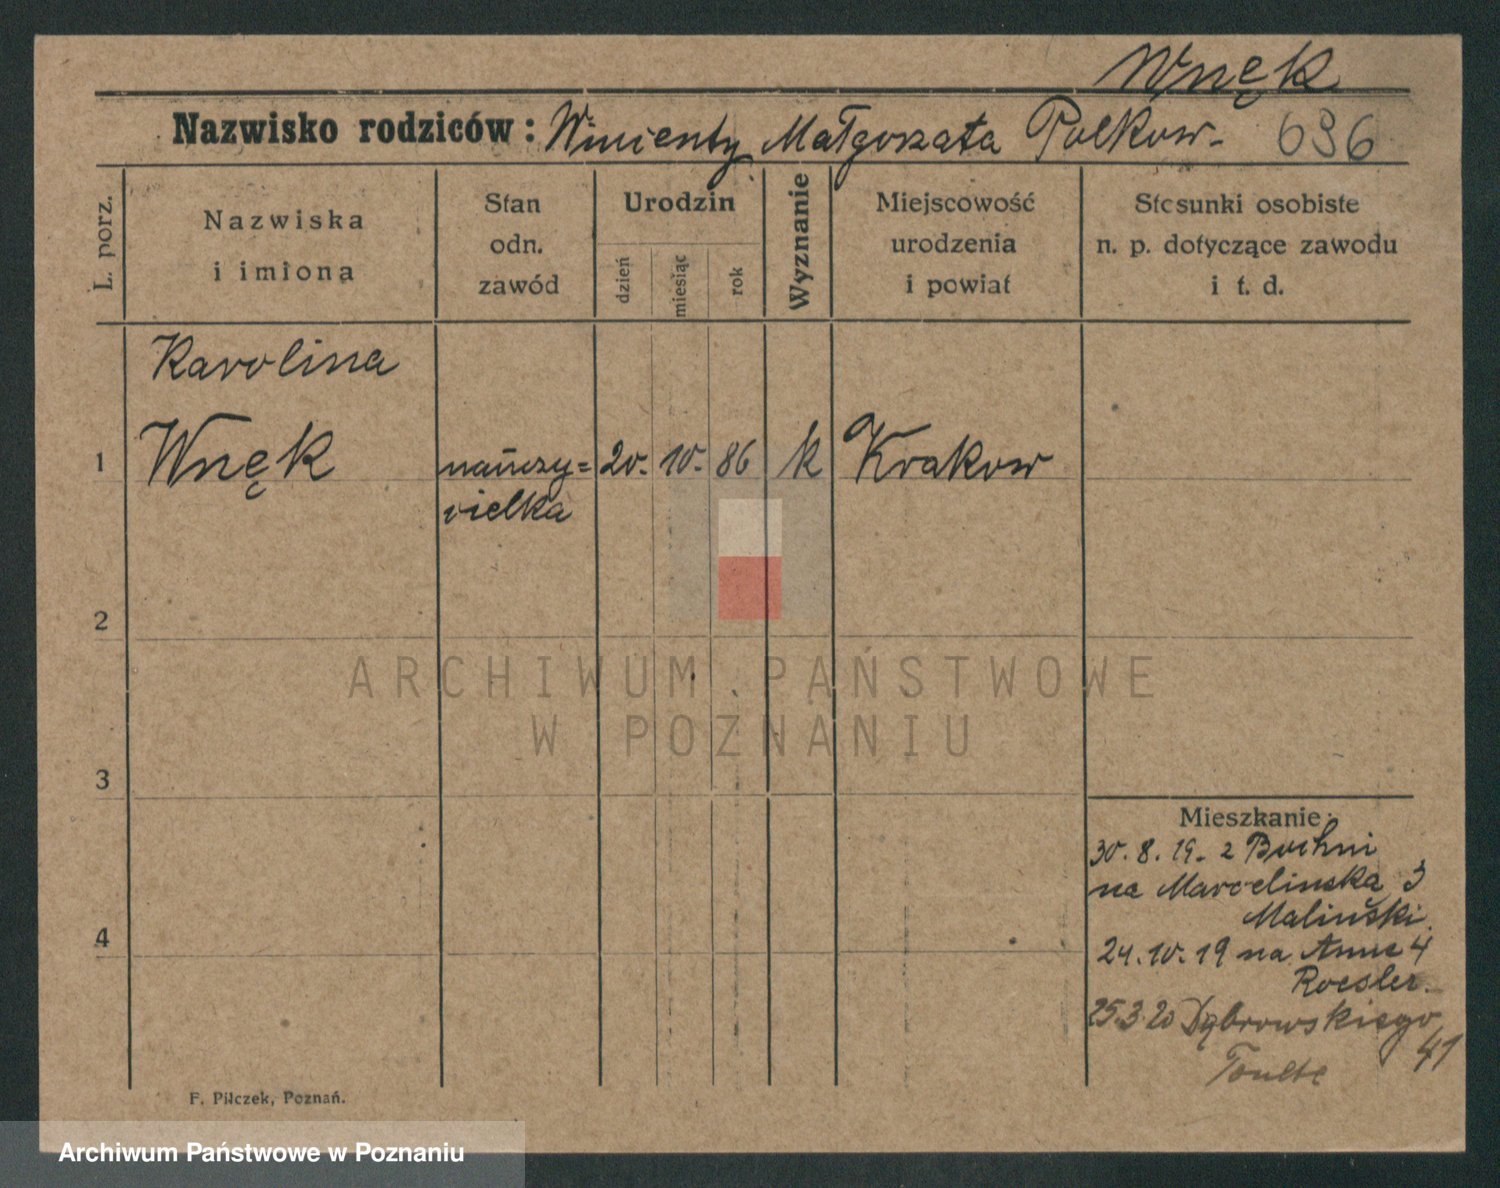 Wnęk
Nazwisko rodziców: Wincenty Małgorzata Polkow- 696
L. porz.
Nazwiska
i imiona
Stan
odn.
zawód
Urodzin
dzień
miesiąc
rok
Wyznanie
Miejscowość
urodzenia
i powiat
Stosunki osobiste
n. p. dotyczące zawodu
i t. d.
Karolina
1 Wnęk nauczy= 20. 10. 86 k Krakow
cielka
2
ARCHIWUM PAŃSTWOWE
W POZNANIU
3
Mieszkanie:
30. 8. 19. z Bochni
na Marcelinska 3
Malinski
4
24. 10. 19 na Anne 4
Roesler.
25.3.20 Dąbrowskiego
41
F. Pilczek, Poznań.
Archiwum Państwowe w Poznaniu